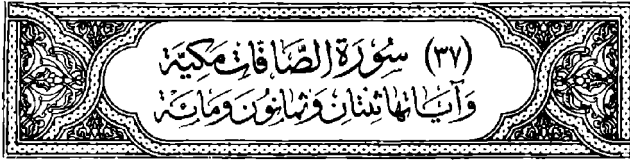 (٣٧) سُورَةِ الصَّافَّاتِ مَكِيَّة
وَآيَاتهَا ثِنْتَانِ وَثمَانُونَ وَمائَة